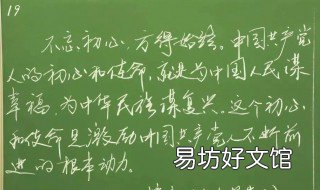 19
不忘初心，方得始终。中国共产党
人的初心和使命，就是为中国人民谋
幸福，为中华民族谋复兴。这个初心
和使命是激励中国共产党人不断前
进的根本动力。
易坊好文馆